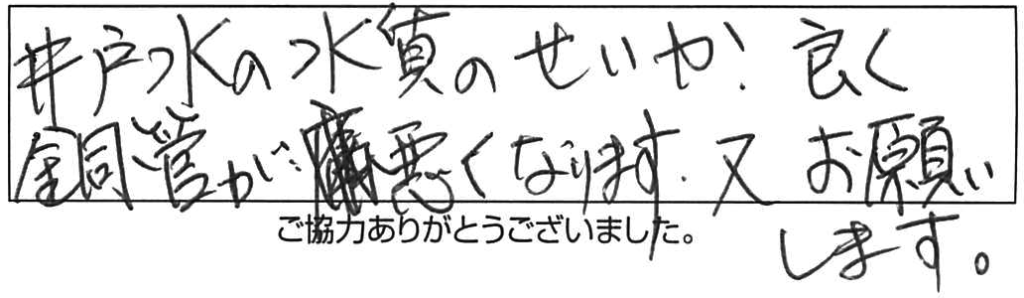 井戸水の水質のせいか、良く
銅管が悪くなります。又お願い
ご協力ありがとうございました。
します。